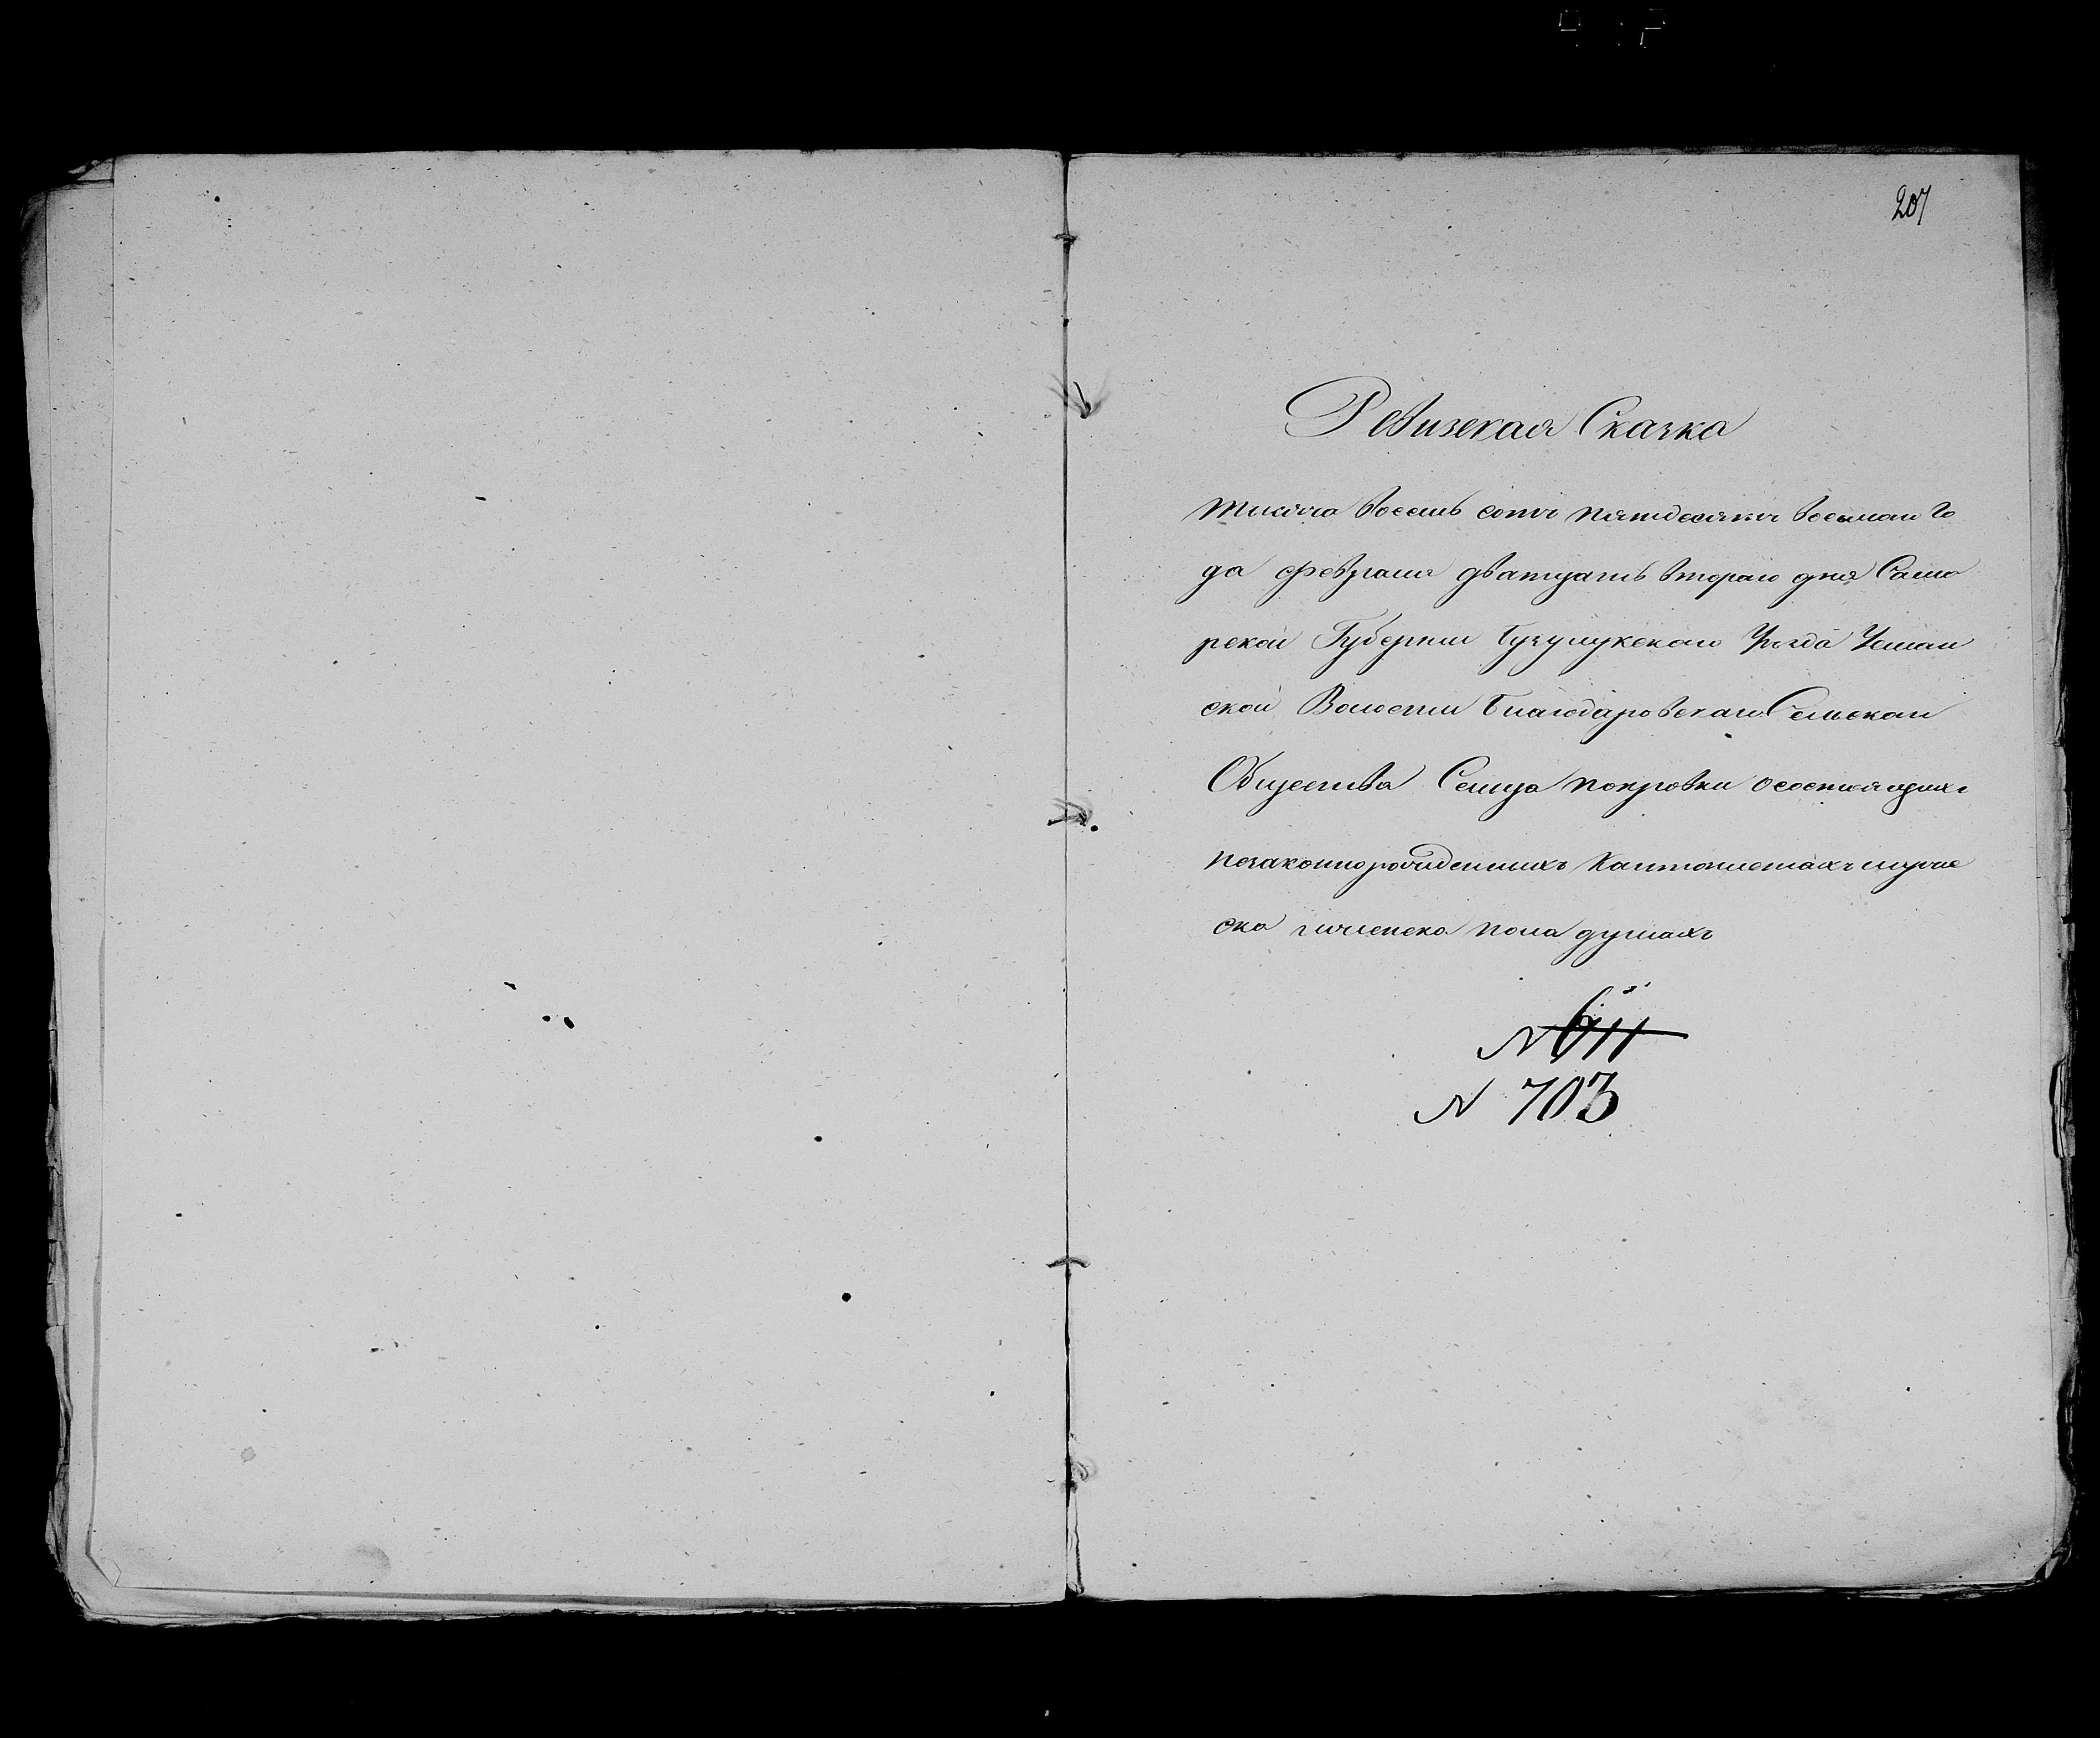 207
Ревизская Сказка
тысяча восемь сотъ пятдесятъ восьмаго го
да февраля дватцать втораго дня Сама
рской Губерніи Бузулукскаго Уѣзда
ской Волости Благодаровскаго Сельскаго
Общества Сельца покровки осостоящихъ
незаконнорожденныхъ Кантонистахъ мужие
ска иженска пола душахъ
N 611
N 703